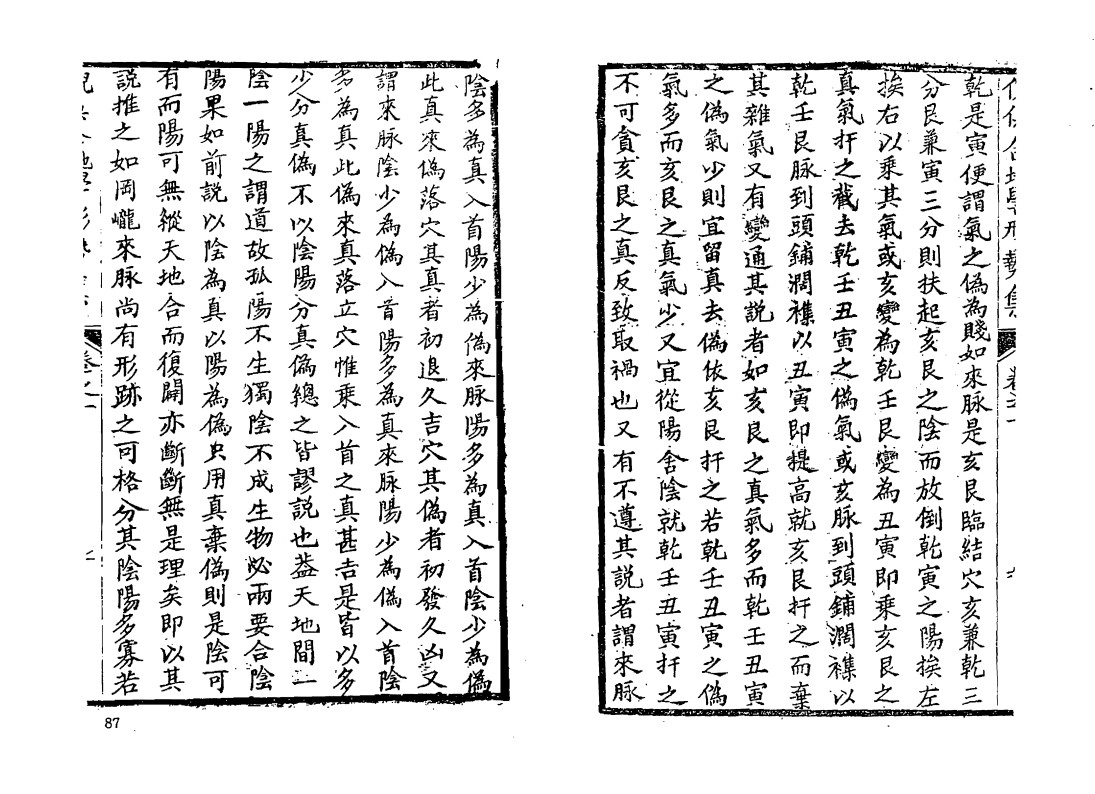 乾是寅便謂氣之偽為賤如來脉是亥艮臨結穴亥兼乾三
分艮兼寅三分則扶起亥艮之陰而放倒乾寅之陽挨左
挨右以乘其氣或亥變為乾壬艮變為丑寅即乘亥艮之
真氣扞之截去乾壬丑寅之偽氣或亥脉到頭鋪濶襍以
乾壬艮脉到頭鋪濶襍以丑寅即提高就亥艮扞之而棄
其雜氣又有變通其說者如亥艮之真氣多而乾壬丑寅
之偽氣少則宜留真去偽依亥艮扞之若乾壬丑寅之偽
氣多而亥艮之真氣少又宜從陽舍陰就乾壬丑寅扞之
不可貪亥艮之真反致取禍也又有不遵其說者謂來脉
陰多為真入首陽少為偽來脉陽多為真入首陰少為偽
此真來偽落穴其真者初退久吉穴其偽者初發久凶又
謂來脉陰少為偽入首陽多為真來脉陽少為偽入首陰
多為真此偽來真落立穴惟乘入首之真甚吉是皆以多
少分真偽不以陰陽分真偽總之皆謬說也葢天地間一
陰一陽之謂道故孤陽不生獨陰不成生物必兩要合陰
陽果如前說以陰為真以陽為偽只用真棄偽則是陰可
有而陽可無縱天地合而復闢亦斷斷無是理矣即以其
說推之如岡巄來脉尚有形跡之可格分其陰陽多寡若
87